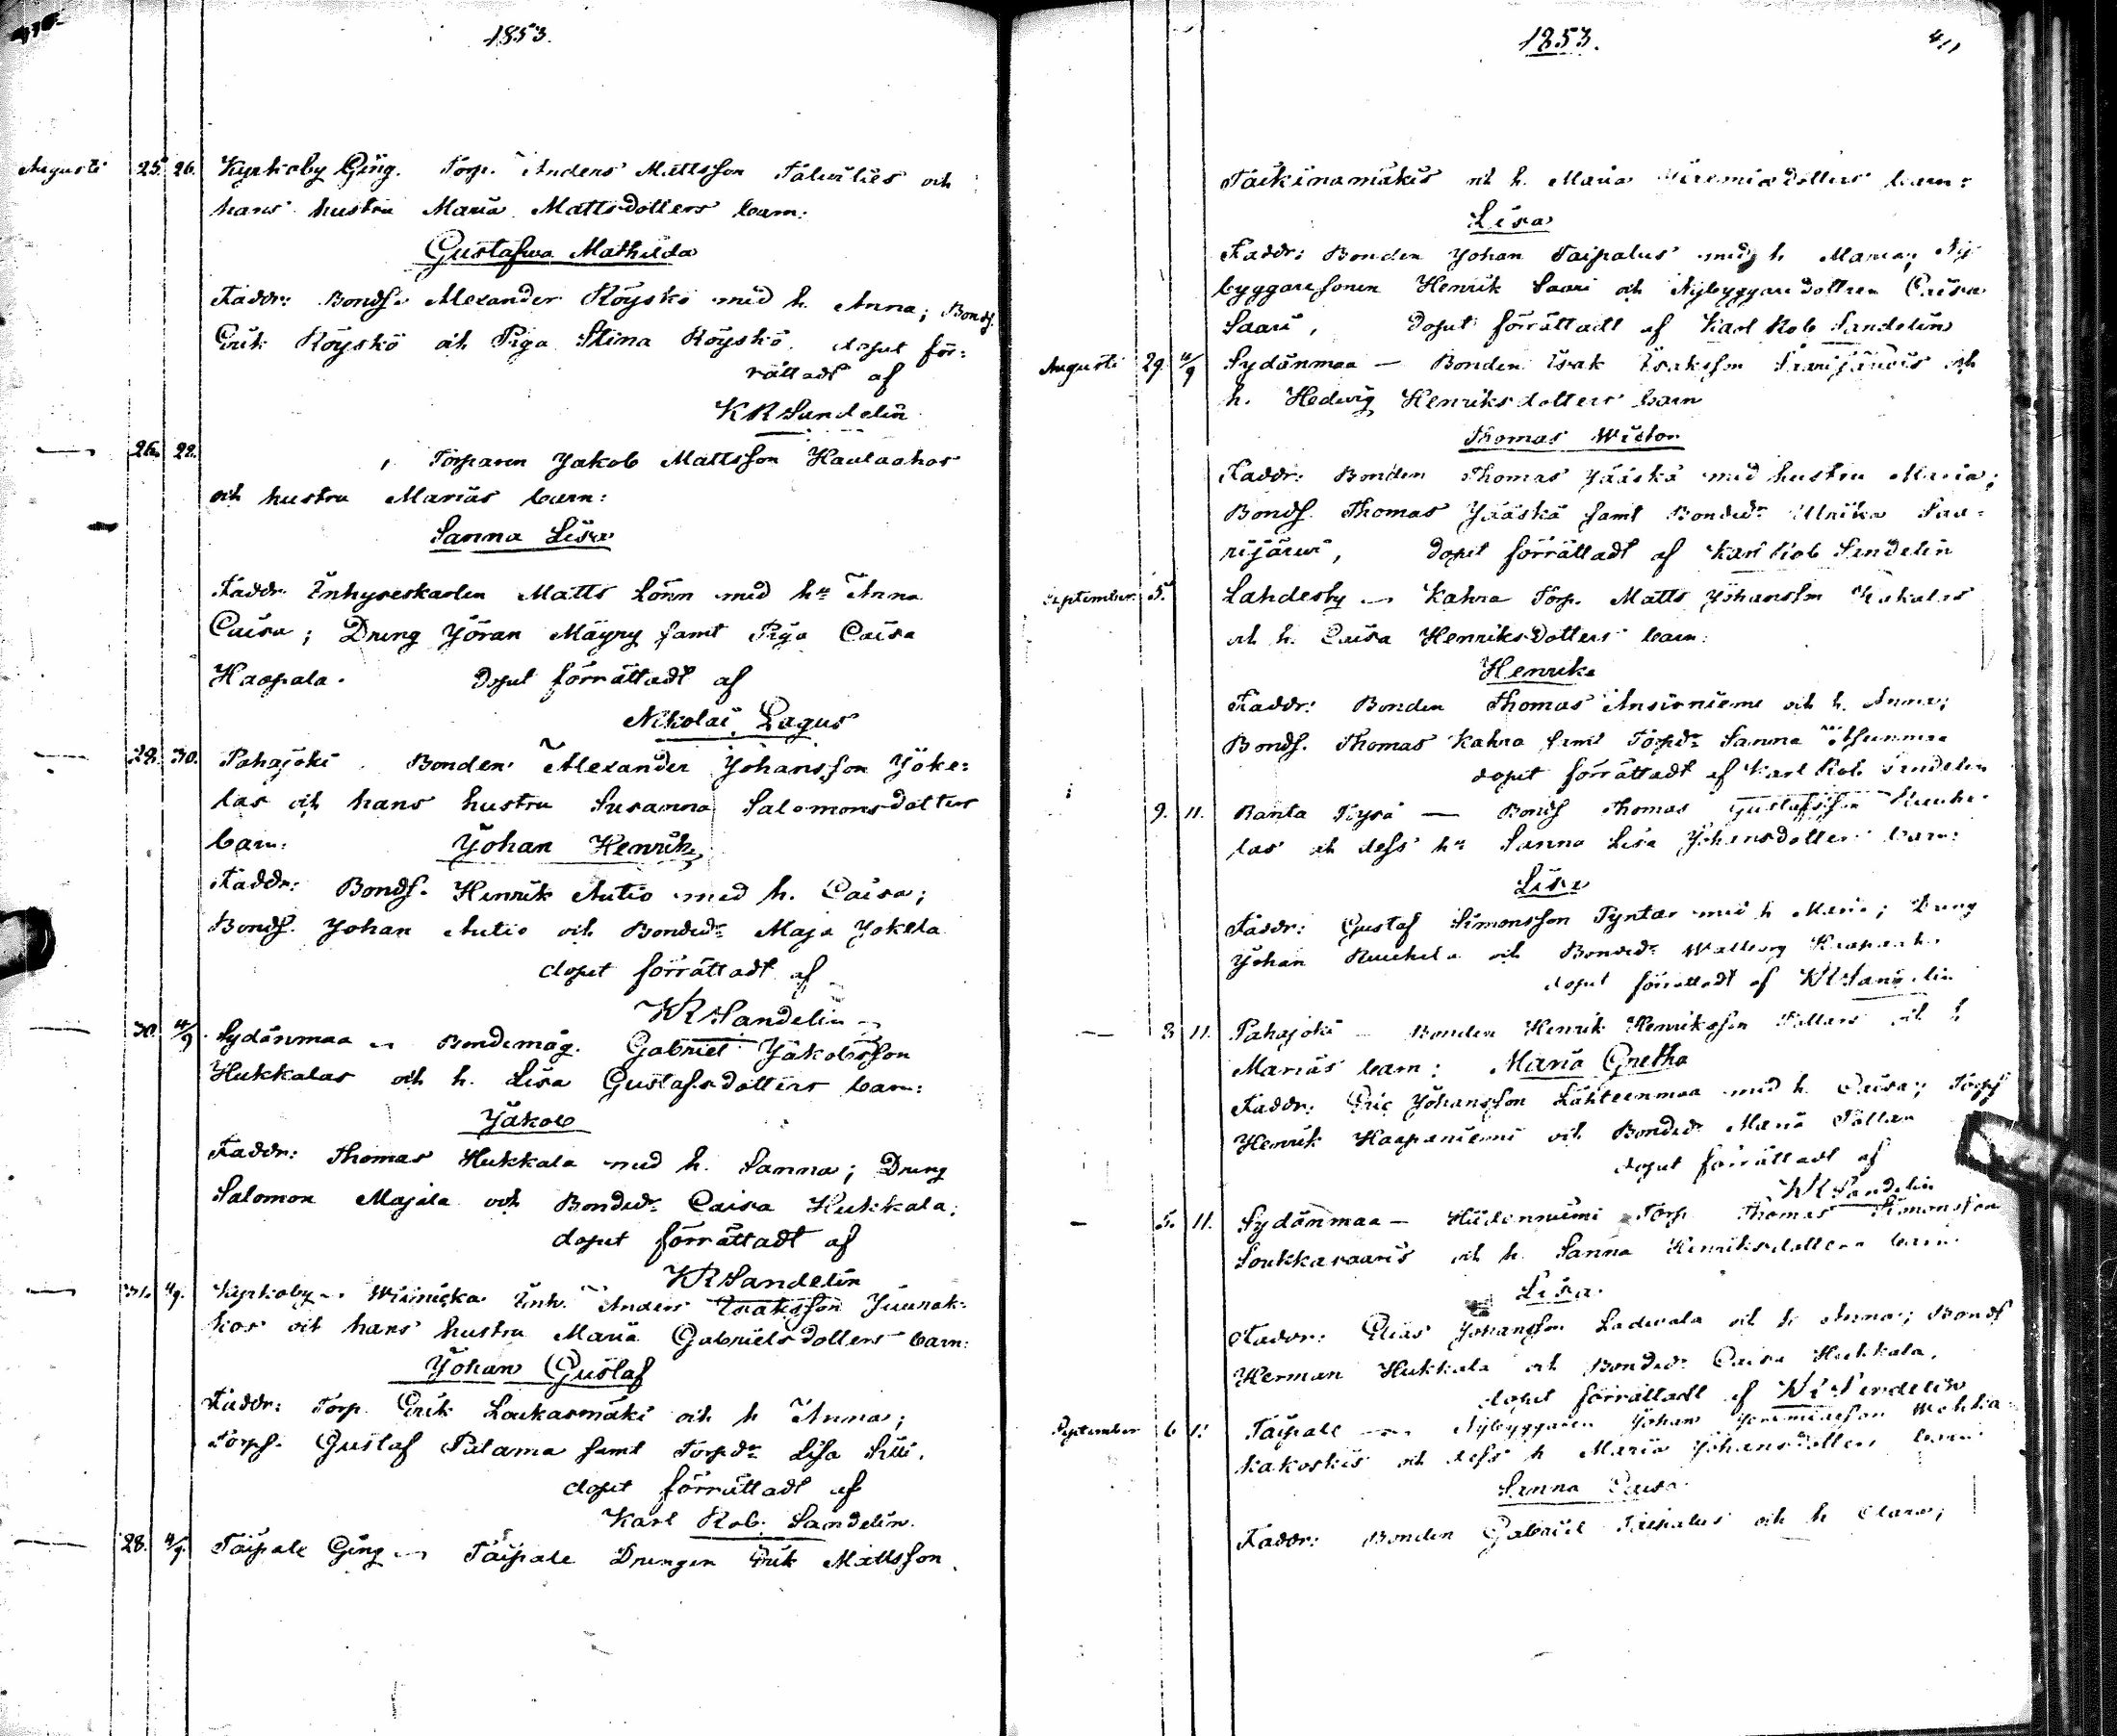 410
1853.
Augusti 25. 26. Kyrkoby Ging. Torp. Anders Mattsson Talvities och
hans hustru Maria Mattsdotters barn:
Gustafwa Mathilda
Faddr: Bonds. Alexander Röyskö med h. Anna; Bonds.
Erik Röyskö och Piga Stina Röyskö. dopet för-
rättadt af
KRSandelin
— 26. 28. Torparen Jakob Mattsson Haulaahos
och hustru Marias barn:
Sanna Lisa
Faddr. Inhyseskarlen Matts Lönn med hu Anna
Caisa; Dreng Jöran Mäyry samt Piga Caisa
Haapala. dopet förrättadt af
Nikolai Lagus
— 28. 30. Pahajoki Bonden Alexander Johansson Joke-
las och hans hustru Susanna Salomonsdotters
barn: Johan Henrik
Faddr: Bonds. Henrik Autio med h. Caisa;
Bonds. Johan Autio och Bonded:r Maja Jokela
dopet förrättadt af
KRSandelin
— 30. 4/9 Sydänmaa — Bondemåg. Gabriel Jakobsson
Hukkalas och h. Lisa Gustafsdotters barn:
Jakob
Faddr: Thomas Hukkala med h. Sanna; Dreng
Salomon Majala och Bonded:r Caisa Hukkala;
dopet förrättadt af
KRSandelin
— 31. 4/9. Kyrkoby — Inh. Anders Isaksson Juunak-
kos och hans hustru Maria Gabrielsdotters barn:
Johan Gustaf
Faddr: Torp. Erik Loukasmäki och h Anna;
Torps. Gustaf Palama samt Torpd:r Lisa
dopet förrättadt af
Karl Rob. Sandelin.
— 28. 4/9. Taipale Ging — Taipale Drengen Erik Mattsson
1853.
411
Täikinamäkis och h. Maria Jeremiædotters barn:
Lisa
Faddr: Bonden Johan Taipalus med h Maria; Ny-
byggaresonen Henrik Saari och Nybyggaredottren Caisa
Saari, dopet förrättadt af Karl Rob Sandelin
Augusti 29. 4/9 Sydänmaa — Bonden Isak Isaksson Saarijärvis och
h. Hedwig Henriksdotters barn
Thomas Wictor
Faddr: Bonden Thomas Jääskä med hustru Maria;
Bonds. Thomas Jääskä samt Bonded:r Ulrika Saa-
rijärvi, dopet förrättadt af Karl Rob Sandelin
September. 5. Lahdesby — Kahra Torp. Matts Johansson
och h. Caisa Henriksdotters barn:
Henrik
Faddr: Bonden Thomas Ansionieme och h. Anna;
Bonds. Thomas Kahra samt Torpd:r Sanna
dopet förrättadt af Karl Rob. Sandelin
9. 11. Ranta Töysä — Bonds Thomas Gustafsson Ruuhe-
las och dess hu Sanna Lisa Johansdotters barn:
Lisa
Faddr: Gustaf Simonsson Tyntar med h Maria; Dreng
Johan Ruuhela och Bonded:r Walborg
dopet förrättadt af KRSandelin
— 3 11. Pahajoki — Bonden Henrik Henriksson Pollars och h
Marias barn: Maria Gretha
Faddr: Eric Johansson Lähteenmaa med h. Caisa; Torps
Henrik Haapaniemi och Bonded:r Maria Pollare
dopet förrättadt af
KRSandelin
— 5. 11. Sydänmaa — Hiidenniemi Torp Thomas Simonsson
Soukkavaaris och h. Sanna Henriksdotters barn.
Lisa.
Faddr: Elias Johansson Ladwala och h Anna; Bonds
Herman Hukkala och Bonded:r Caisa Hukkala.
dopet förrättadt af KRSandelin
September 6 Taipale — Nybyggaren Johan Jeremiæsson
kakoskis och dess h Maria Johansdotters barn:
Sanna Caisa
Faddr: Bonden Gabriel Taipalus och h Clara;